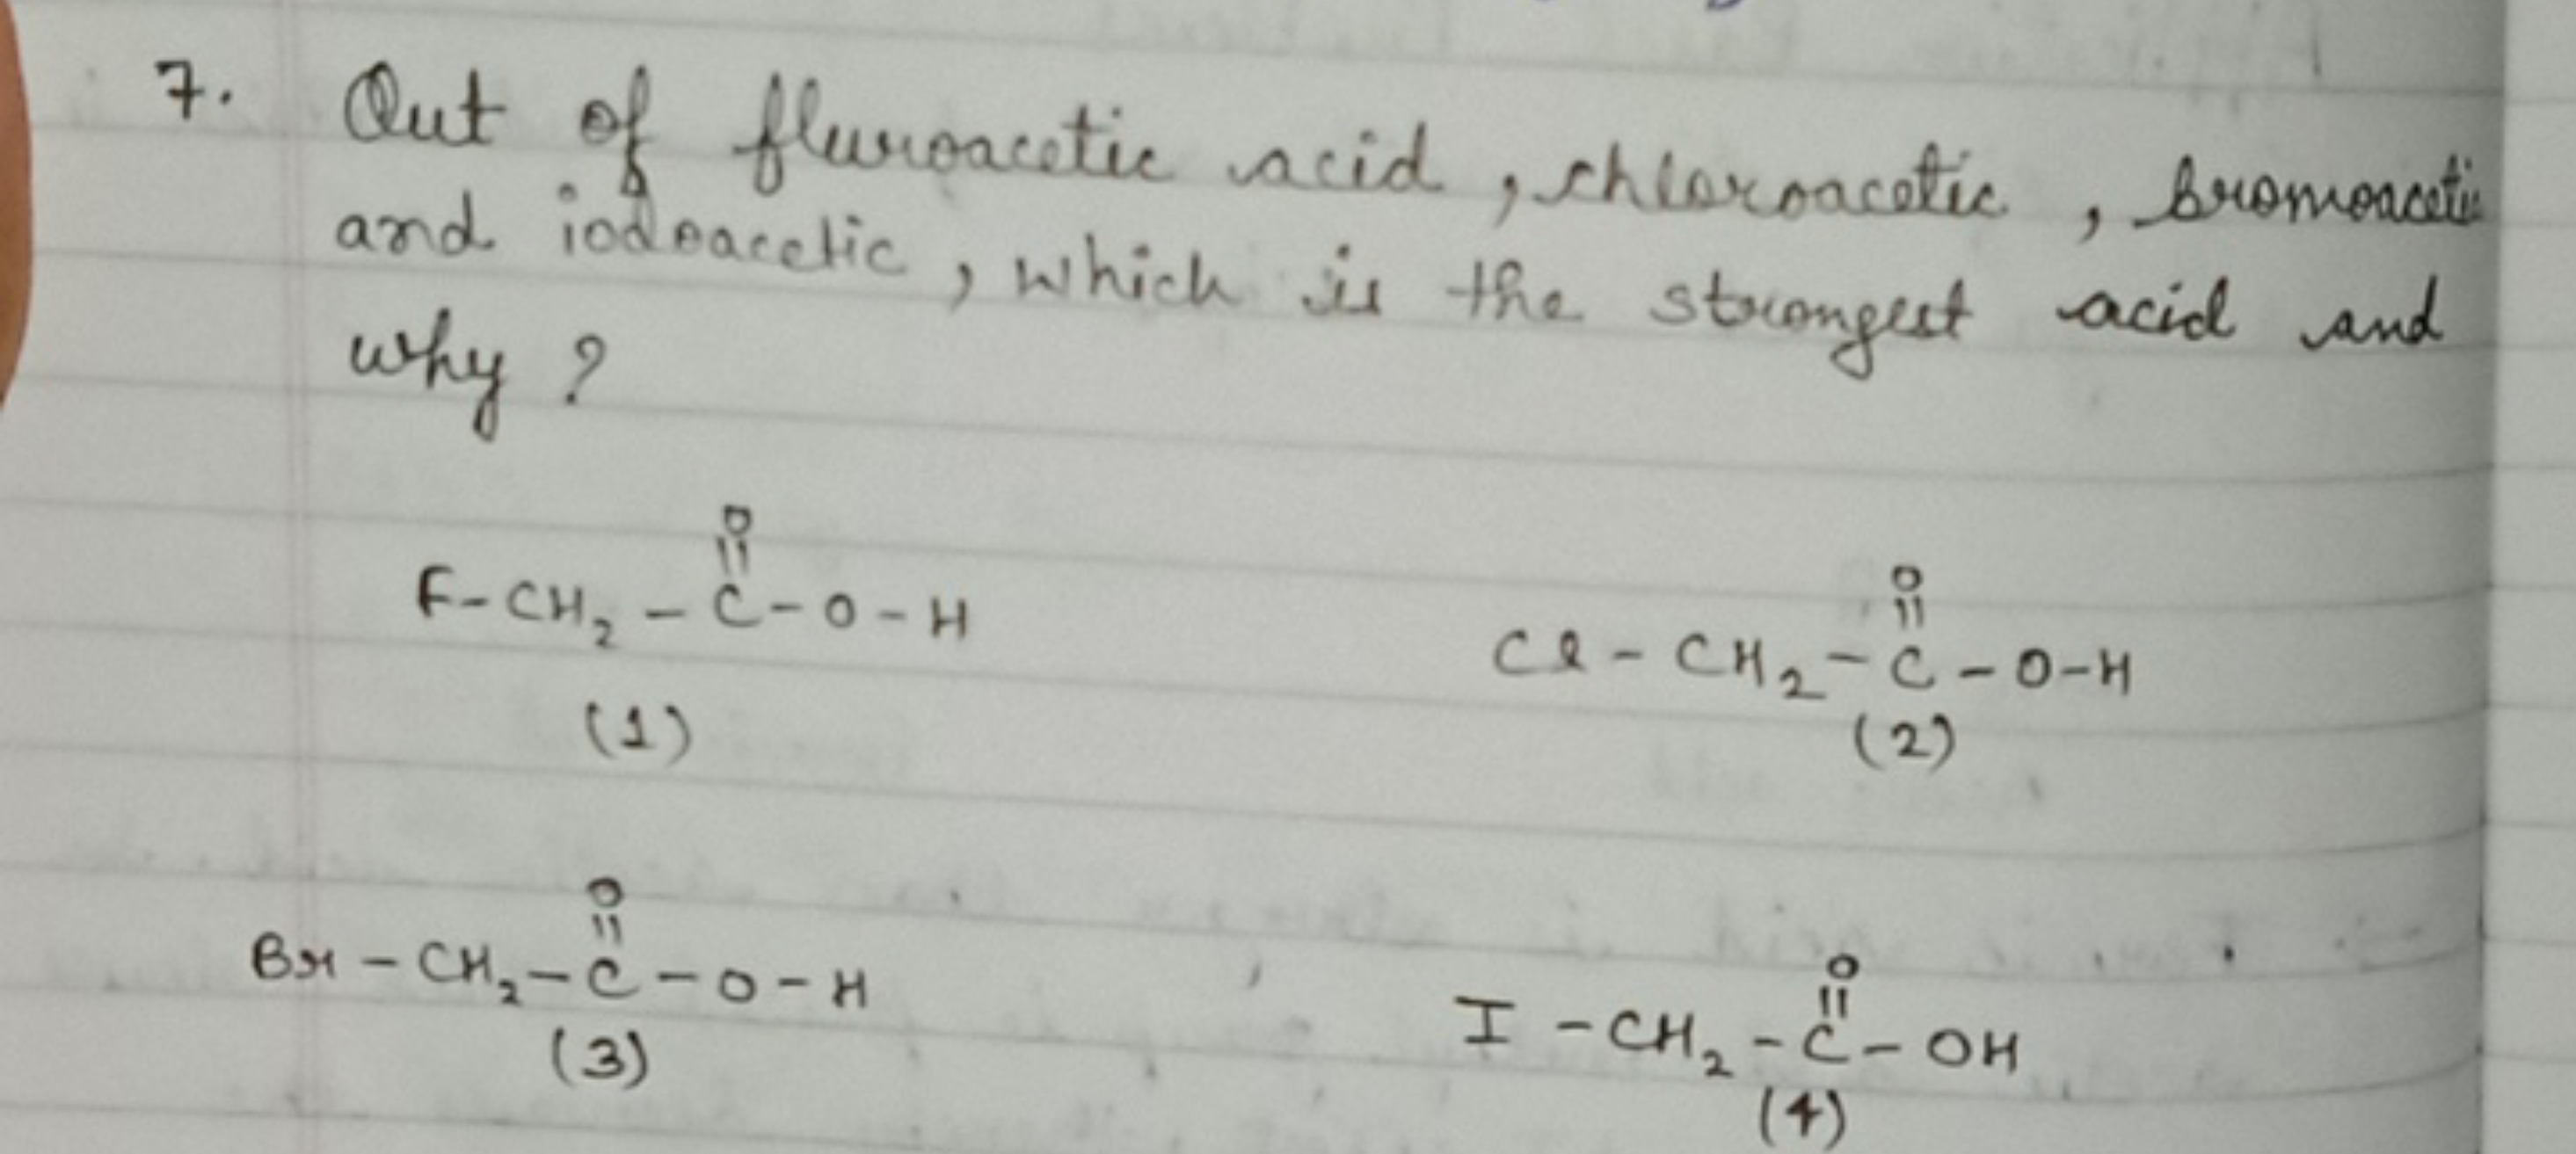 7. Out of fluroacetic acid, chloroacetic, bromoacetic
and iodoacetic, which is the strongest acid and
why?
O
||
F-CH₂-C-O-H
(1)
O
||
Cl-CH₂-C-O-H
(2)
O
||
Br-CH₂-C-O-H
(3)
O
||
I-CH₂-C-OH
(4)